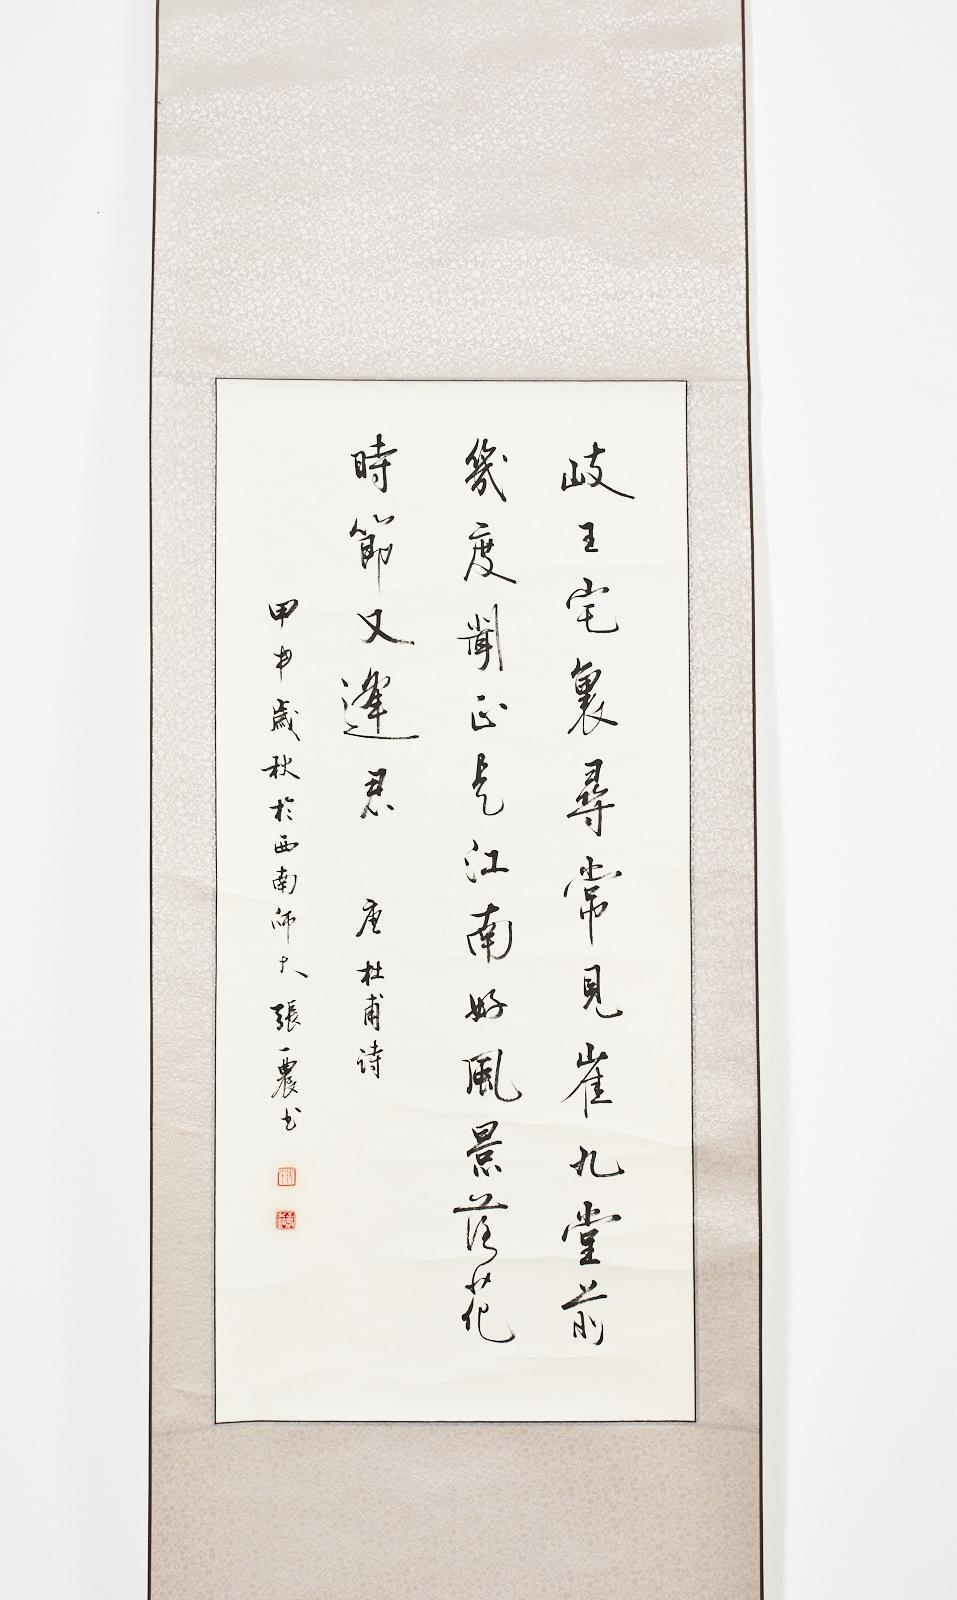 岐王宅裏尋常見崔九堂前
幾度聞正是江南好風景落花
時節又逢君 唐杜甫诗
甲申歲秋於西南师大張一農书